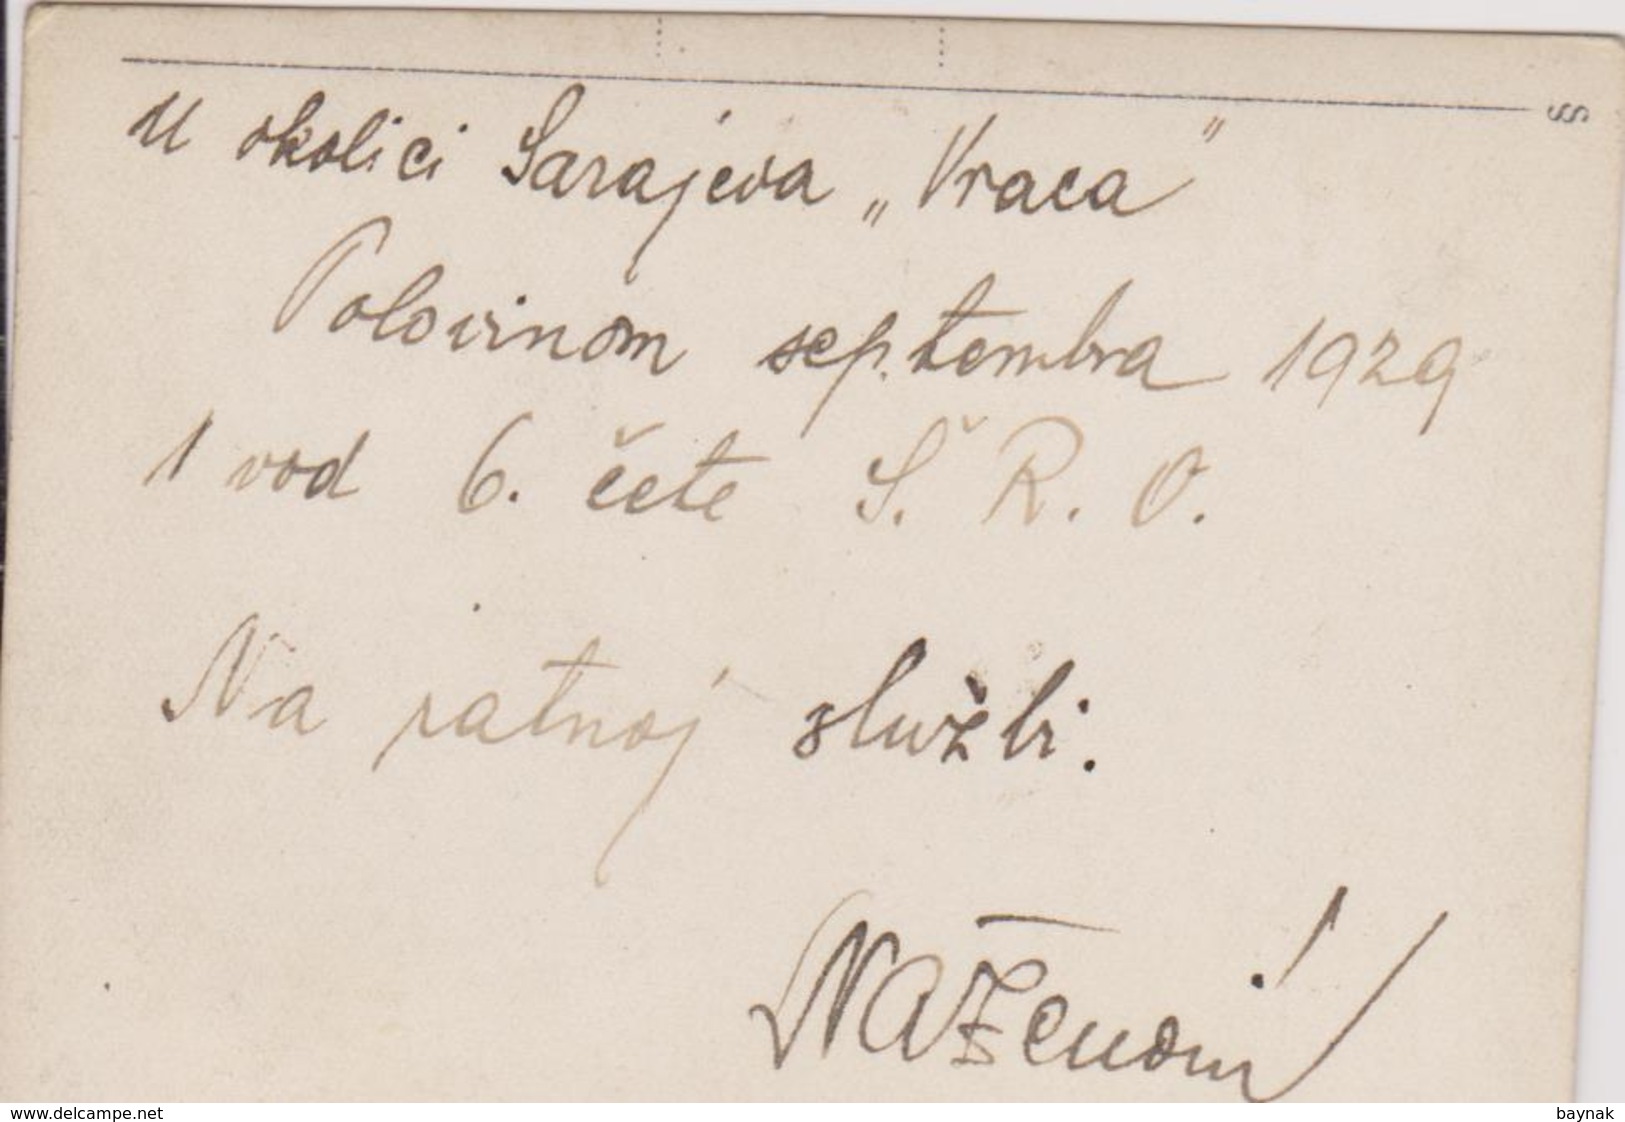 u okolici Sarajeva „Vraca"
Polovinom septembra 1929
1 vod 6. čete Š. R. O.
Na ratnoj službi.
www.delcampe.net
baynak